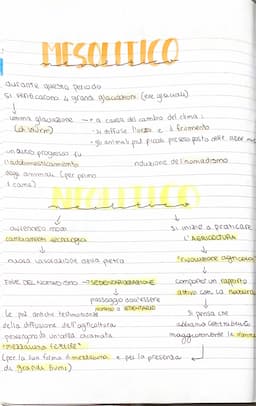 MESOLITICO
durante questo periodo
si verificarono 4 grandi glaciazioni (ere glaciali)
ultima glaciazione → a causa del cambio del clima:
• si diffuse l'orzo e il frumento
• gli animali più piccoli presero posto delle
un altro progresso fu
l'addomesticamento riduzione del nomadismo
degli animali (per primo
il cane)
NEOLITICO
avvennero modi si inizia a praticare
cambiamenti tecnologici L'AGRICOLTURA
nuova lavorazione della pietra "rivoluzione agricola"
FINE DEL NOMADISMO → SEDENTARIZZAZIONE comportò un rapporto
attivo con la natura
passaggio dall'essere
nomadi a sedentari
Le più antiche testimonianze si pensa che
della diffusione dell'agricoltura abbiano contribuito
provengono da un'area chiamata maggiormente le donne
"mezzaluna fertile"
(per la sua forma a mezzaluna e per la presenza
di grandi fiumi)